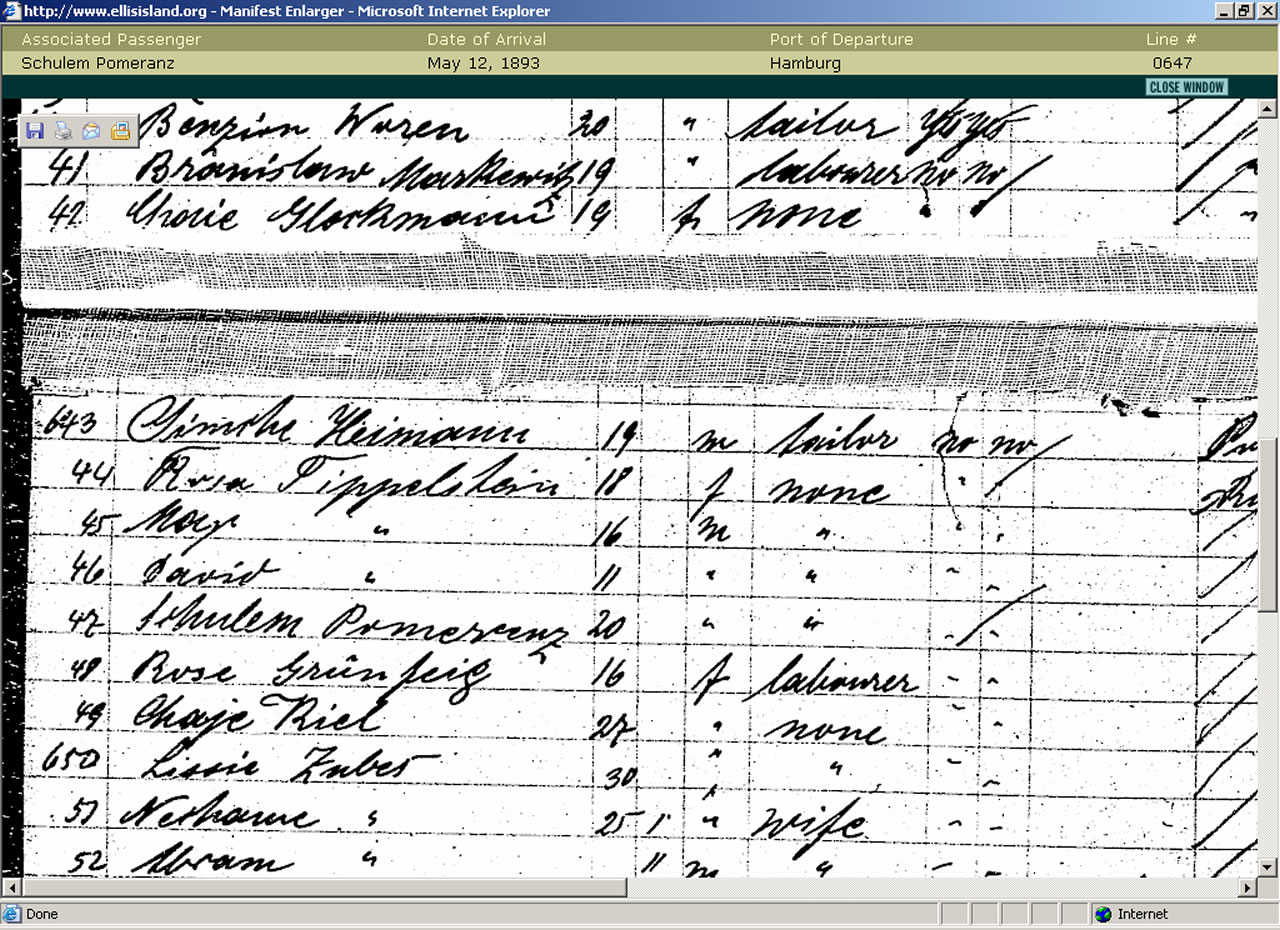 http://www.ellisisland.org - Manifest Enlarger - Microsoft Internet Explorer
Associated Passenger Date of Arrival Port of Departure Line #
Schulem Pomeranz May 12, 1893 Hamburg 0647
CLOSE WINDOW
Benzion Woren 20 " tailor yes yes
41 Branislaw Markewitz 19 " labourer no no
42 Chaie Glockmann 19 f none
643 Simche Heimann 19 m tailor no no
44 Rosa Tippelstein 18 f none "
45 " 16 m " " "
46 David " 11 " " " "
47 Schulem Pomeranz 20 " " " "
48 Rose Grünfeig 16 f labourer " "
49 Chaje Kiel 27 " none " "
650 Lissie 30 " " " "
51 " 25 1 " wife " "
52 Abram " 11 m " " "
Done Internet